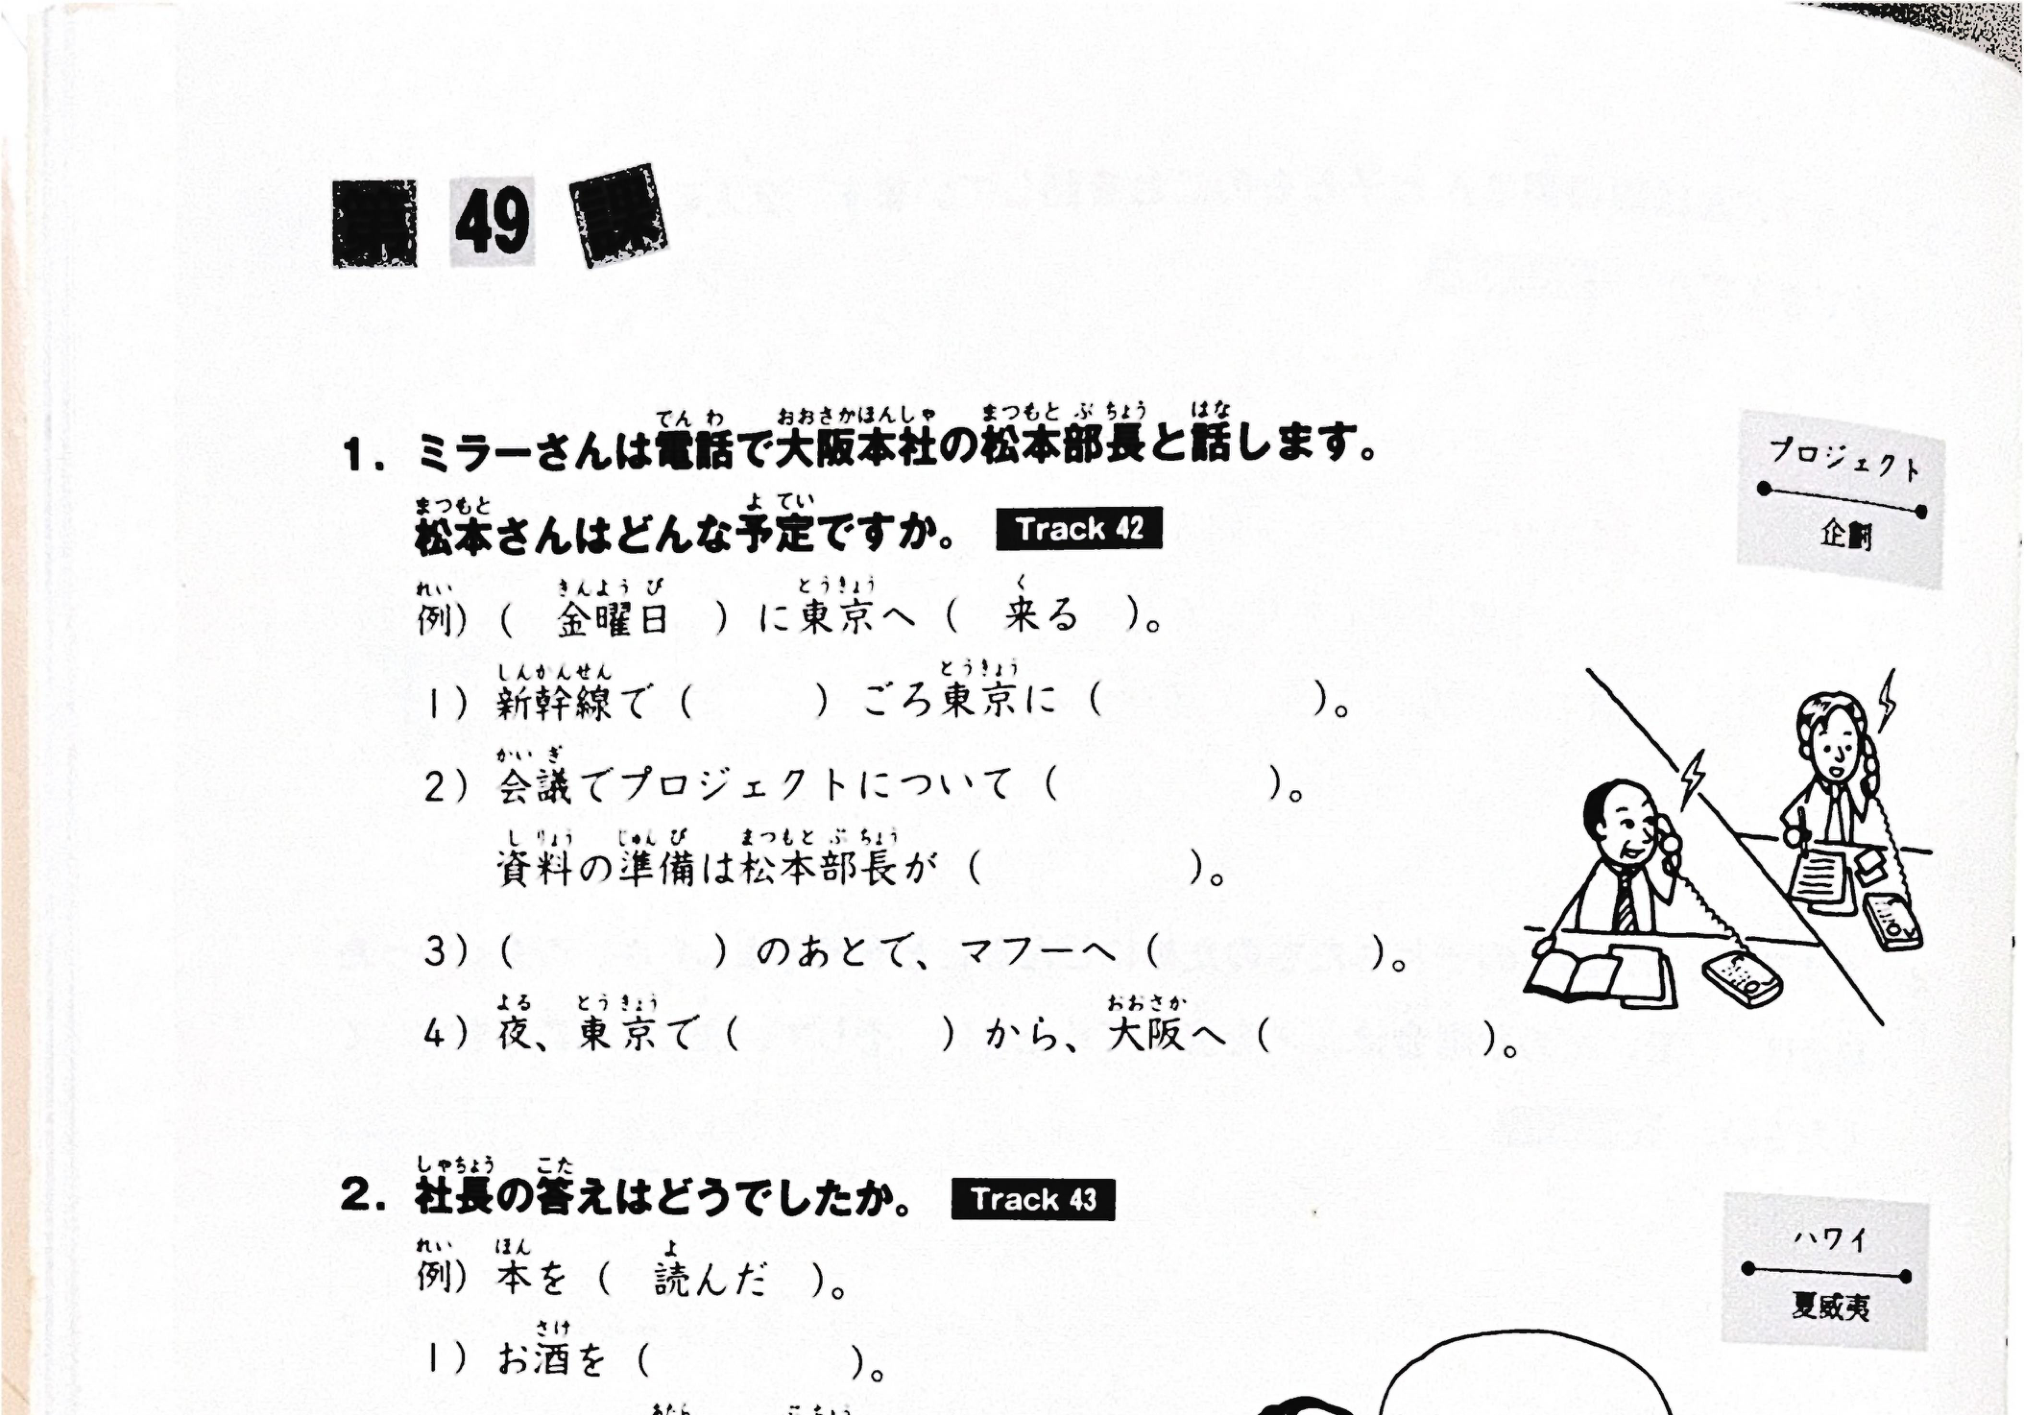 第 49 課
1. ミラーさんは電話で大阪本社の松本部長と話します。
松本さんはどんな予定ですか。 Track 42
例）（ 金曜日 ）に東京へ（ 来る ）。
1）新幹線で（ ）ごろ東京に（ ）。
2）会議でプロジェクトについて（ ）。
資料の準備は松本部長が（ ）。
3）（ ）のあとで、マフーへ（ ）。
4）夜、東京で（ ）から、大阪へ（ ）。
プロジェクト
企劃
2. 社長の答えはどうでしたか。 Track 43
例）本を（ 読んだ ）。
1）お酒を（ ）。
ハワイ
夏威夷